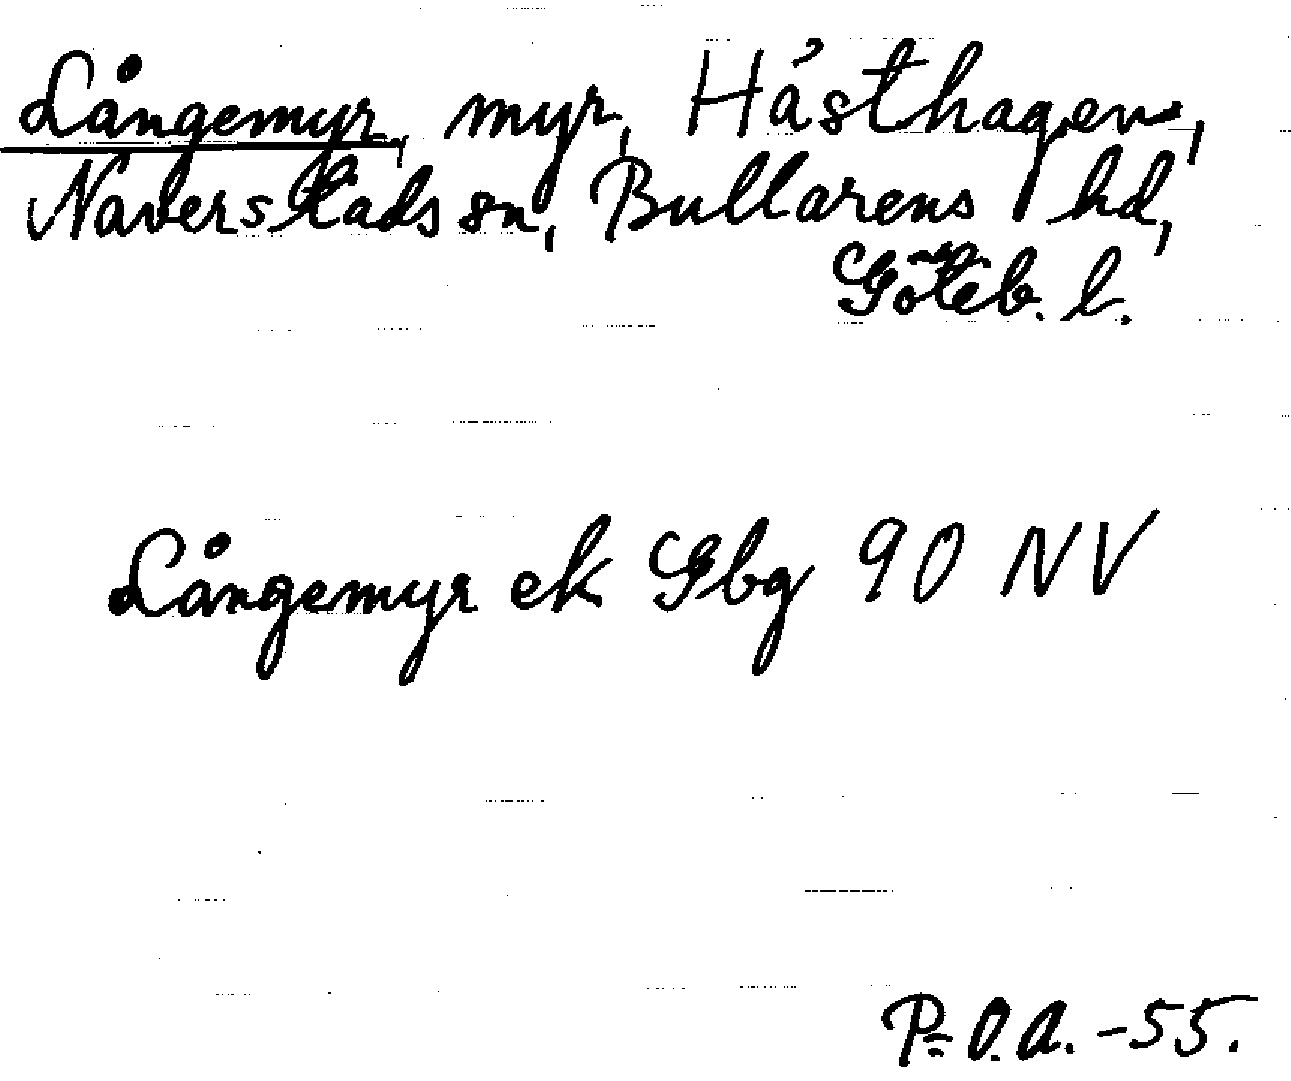 Långemyr, myr, Hästhagen,
Naverstads sn, Bullarens hd,
Göteb. l.
Långemyr ek Gbg 90 NV
P=O.A. -55.